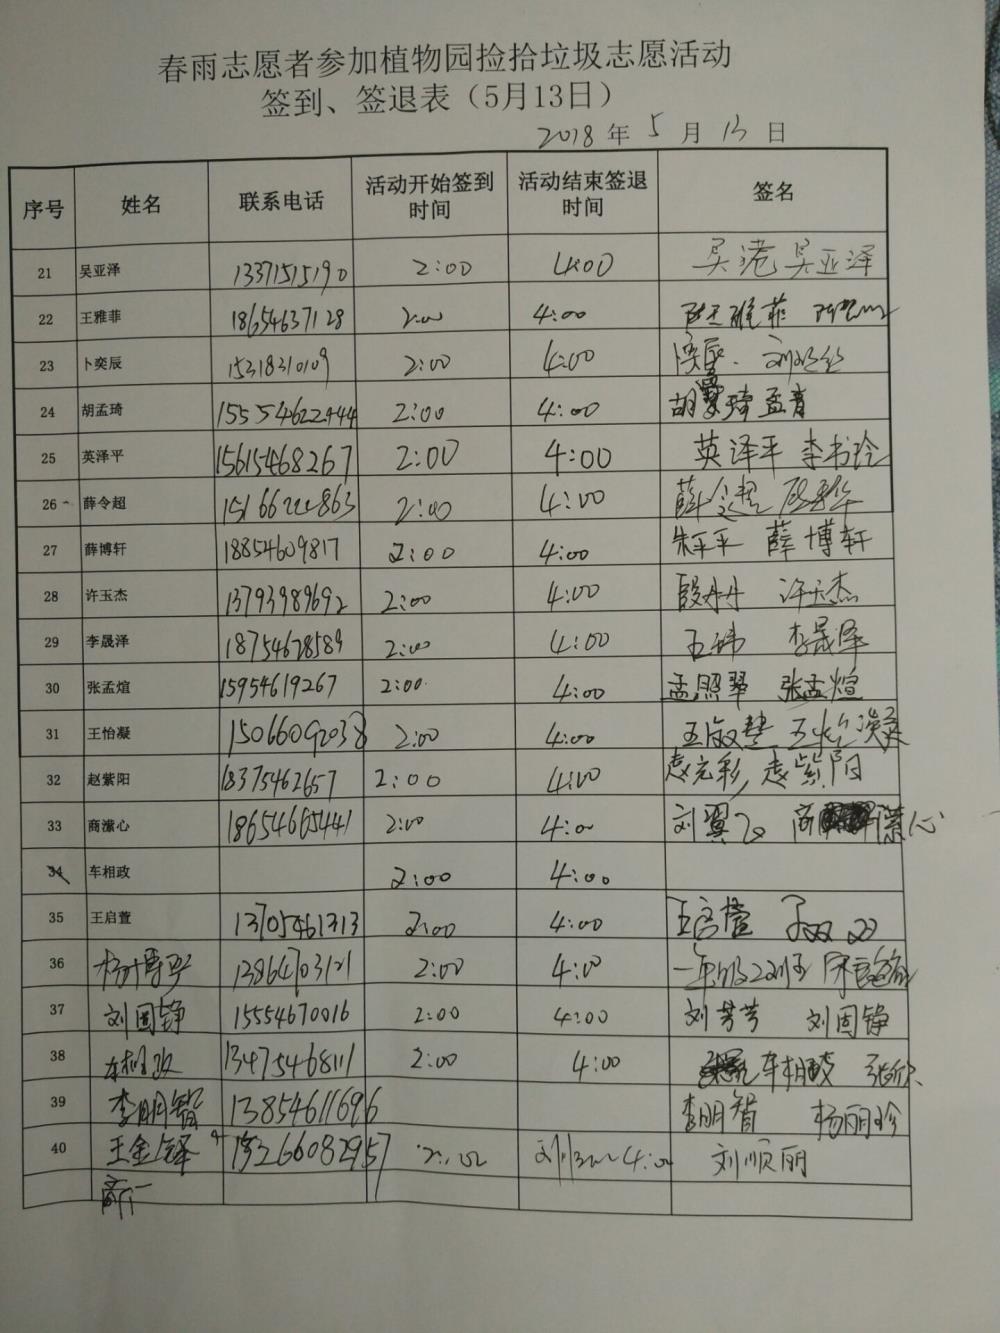 春雨志愿者参加植物园捡拾垃圾志愿活动
签到、签退表（5月13日）
2018 年 5 月 13 日
序号 姓名 联系电话 活动开始签到时间 活动结束签退时间 签名
21 吴亚泽 13371515190 2:00 4:00 吴港 吴亚泽
22 王雅菲 18654637128 2:00 4:00 王雅菲
23 卜奕辰 15318310109 2:00 4:00
24 胡孟琦 15554622444 2:00 4:00 胡 琦 孟青
25 英泽平 15615468267 2:00 4:00 英泽平 李书玲
26 薛令超 15166222863 2:00 4:00 薛令超
27 薛博轩 18854609817 2:00 4:00 朱平平 薛博轩
28 许玉杰 13793989692 2:00 4:00 段丹丹 许玉杰
29 李晟泽 18754628589 2:00 4:00 李晟泽
30 张孟煊 15954619267 2:00 4:00 孟照翠 张孟煊
31 王怡凝 15066092038 2:00 4:00 王怡凝
32 赵紫阳 18375462657 2:00 4:00 赵元彩 赵紫阳
33 商潆心 18654665441 2:00 4:00 刘翼飞 商潆心
34 车相政 2:00 4:00
35 王启萱 13705461313 2:00 4:00 王启萱
36 13864703121 2:00 4:00 一年级2
37 刘固铮 15554670016 2:00 4:00 刘芳芳 刘固铮
38 车相政 13475468111 2:00 4:00 车相政 张欣
39 李明智 13854611696 李明智 杨丽珍
40 王金铎 15266082957 2:00 4:00 刘顺丽